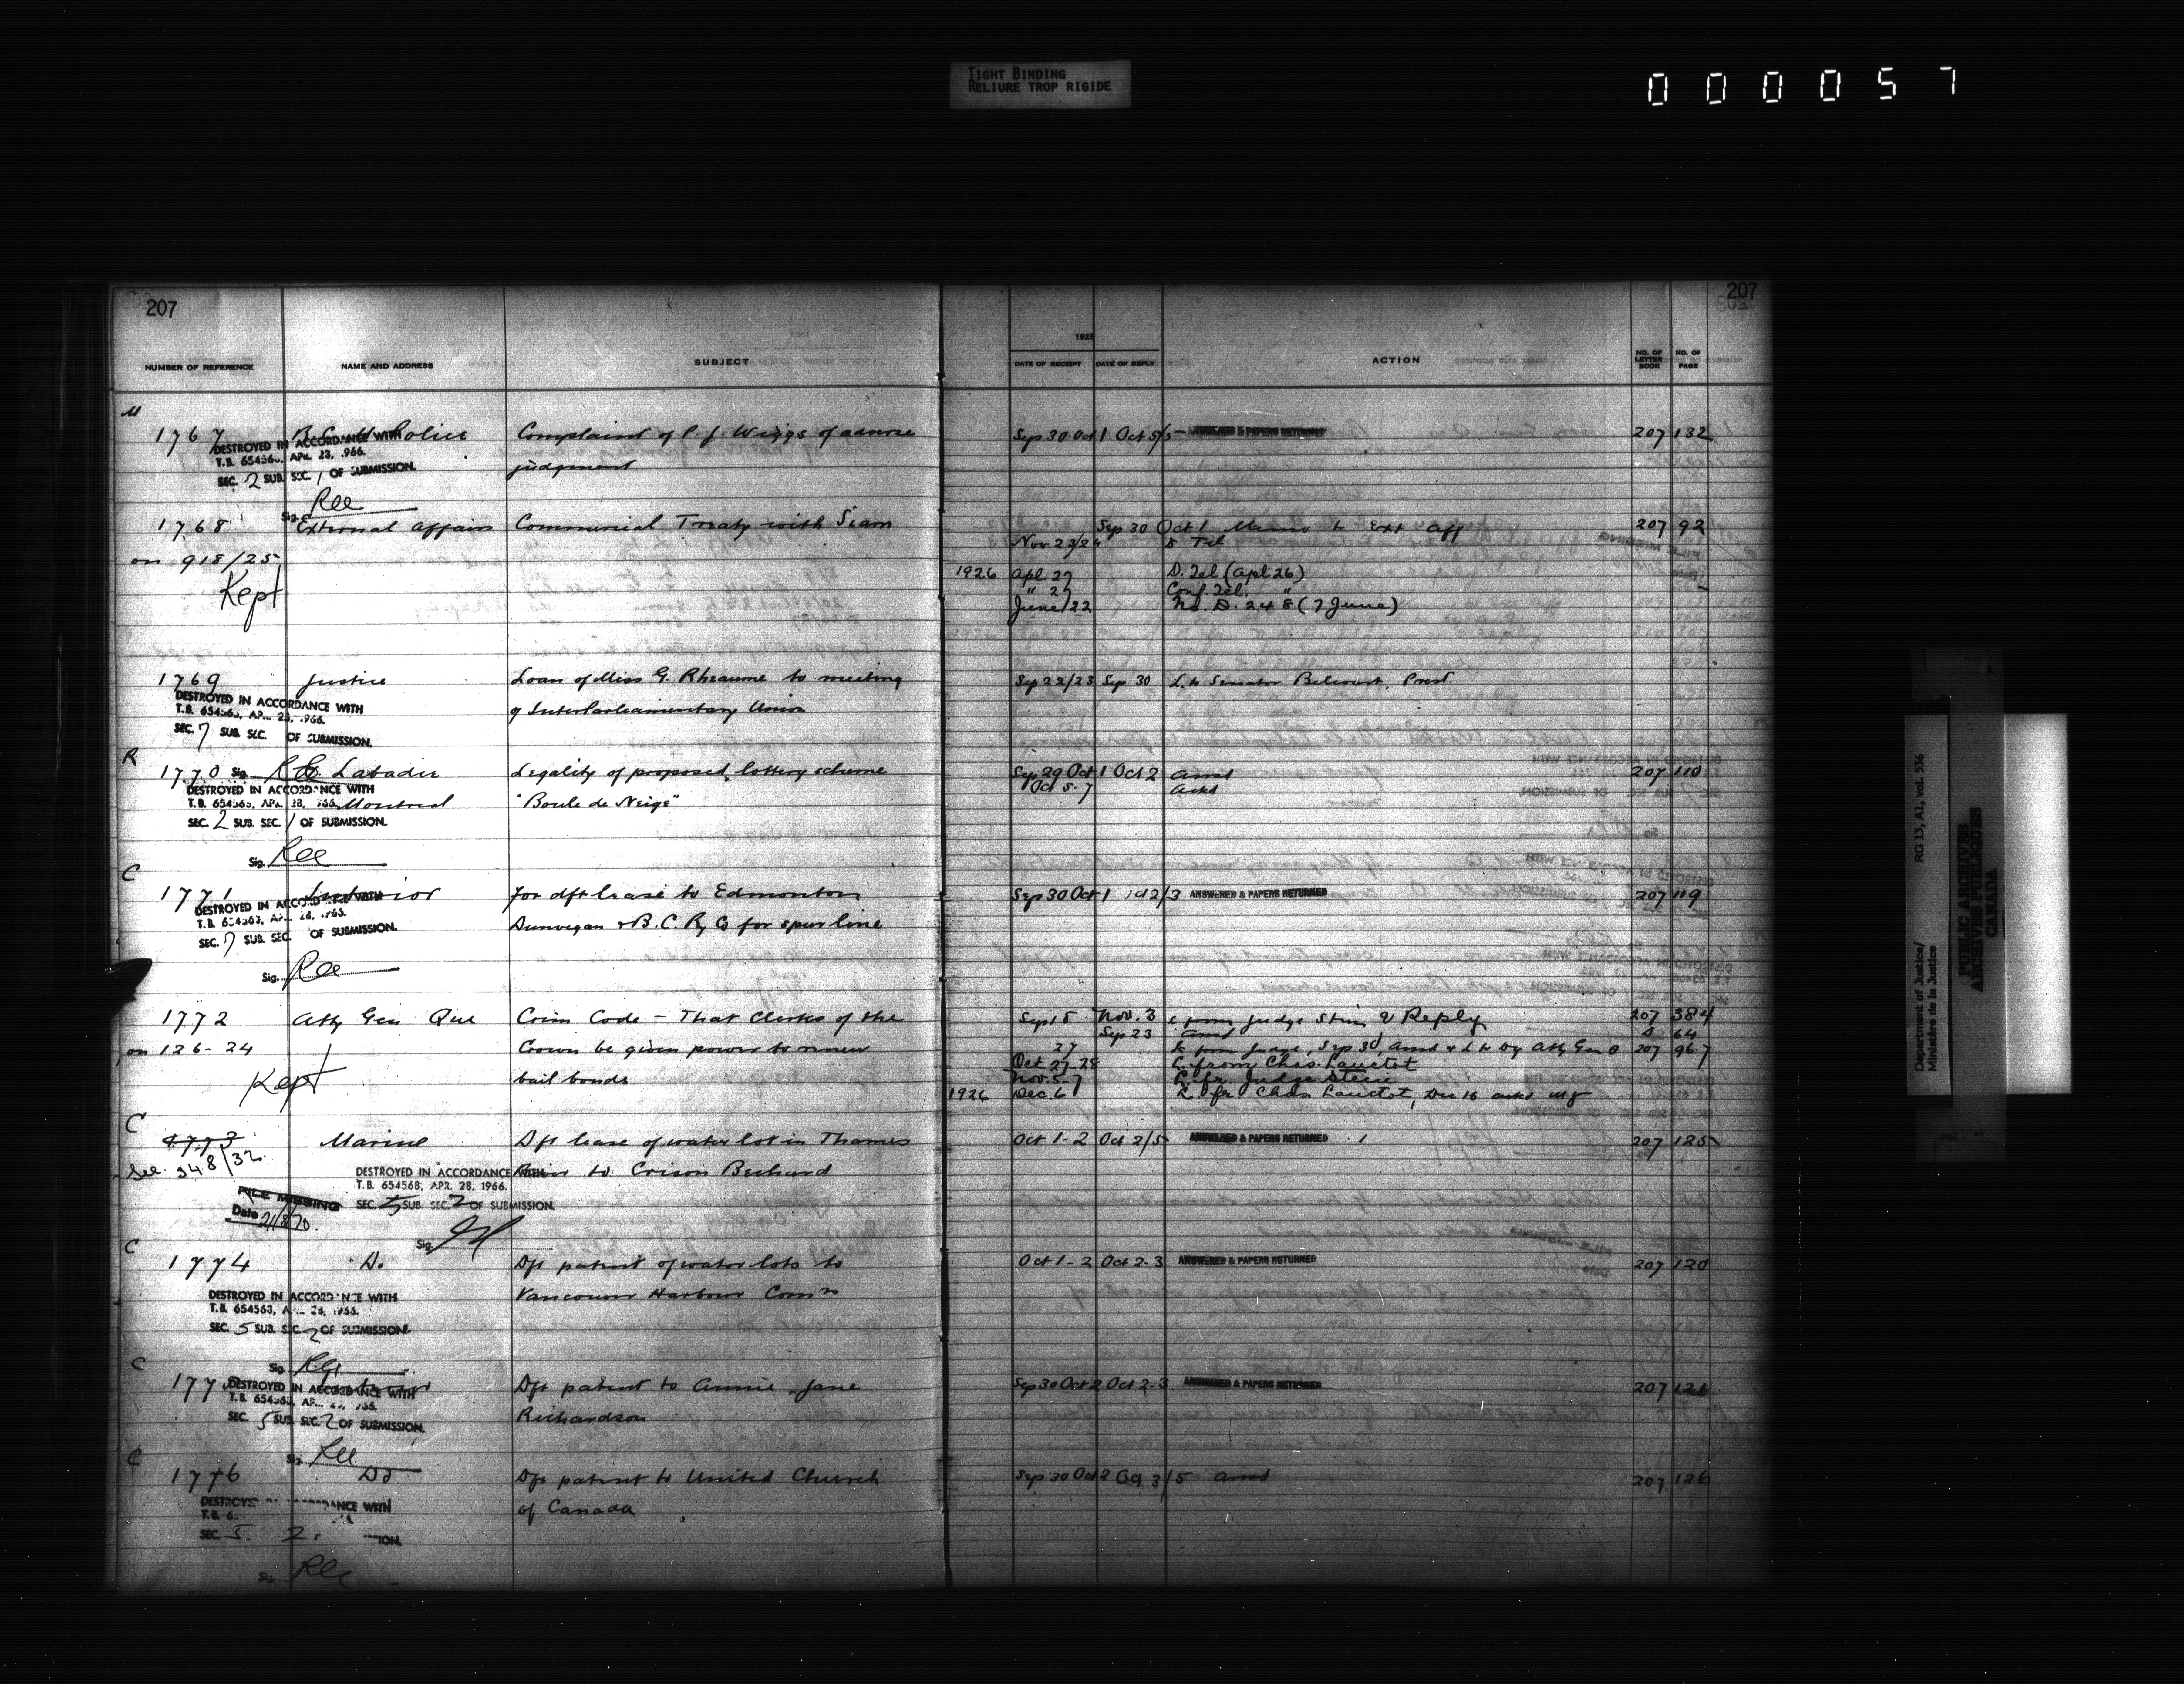 TIGHT BINDING
RELIURE TROP RIGIDE
000057
207
207
NUMBER OF REFERENCE NAME AND ADDRESS SUBJECT DATE OF RECEIPT DATE OF REPLY ACTION NO. OF LETTER BOOK NO. OF PAGE
M
1767 Police Complaint of P. J. Wiggs of adverse Sep 30 Oct 1 Oct 5/5 ANSWERED & PAPERS RETURNED 207 132
judgment
DESTROYED IN ACCORDANCE WITH
T.B. 654563, APR. 28, 1966.
SEC. 2 SUB. SEC. 1 OF SUBMISSION.
Sig. Rll
1768 External Affairs Commercial Treaty with Siam Sep 30 Oct 1 Memo to Ext Aff 207 92
Nov 23/24 Tel
on 918/25
1926 Apl. 27 D. Tel (Apl 26)
Kept " 27 Conf. Tel. "
June/22 No. D. 248 (7 June)
1769 Justice Loan of Miss G. Rheaume to meeting Sep 22/23 Sep 30 L. to Senator Belcourt, Prest.
of InterParliamentary Union
DESTROYED IN ACCORDANCE WITH
T.B. 654563, APR. 28, 1966.
SEC. 7 SUB. SEC. OF SUBMISSION.
R
1770 Sig. Labadie Legality of proposed lottery scheme Sep 29 Oct 1 Oct 2 Ansd 207 110
Oct 5-7 Ackd
Montreal "Boule de Neige"
DESTROYED IN ACCORDANCE WITH
T.B. 654563, APR. 28, 1966.
SEC. 2 SUB. SEC. 1 OF SUBMISSION.
Sig. Rll
C
1771 Interior For dft lease to Edmonton Sep 30 Oct 1 Oct 2/3 ANSWERED & PAPERS RETURNED 207 119
Dunvegan & B.C. Ry Co for spur line
DESTROYED IN ACCORDANCE WITH
T.B. 654563, APR. 28, 1966.
SEC. 7 SUB. SEC. OF SUBMISSION.
Sig. Rll
1772 Atty Gen Que Crim Code - That Clerks of the Sep 18 Nov. 3 L from Judge & Reply 207 384
Sep 23 Ansd 64
on 126-24 Crown be given power to renew 27 L from Judge, Sep 30, Ansd & L to Dy Atty Gen 207 96-7
Oct 27-28 L. from Chas. Lanctot
Kept bail bonds Nov. 5-7 L. fr. Judge
1926 Dec. 6 L fr Chas Lanctot, Dec 16
C
1773 Marine Dft lease of water lot in Thames Oct 1-2 Oct 2/5 ANSWERED & PAPERS RETURNED 207 125
See 348/32 River to Crison Bechard
DESTROYED IN ACCORDANCE WITH
T.B. 654568, APR. 28, 1966.
SEC. 5 SUB SEC. 2 OF SUBMISSION.
FILE MISSING
Date 21/8/70.
Sig.
C
1774 Do Dft patent of water lots to Oct 1-2 Oct 2-3 ANSWERED & PAPERS RETURNED 207 120
Vancouver Harbour Comrs
DESTROYED IN ACCORDANCE WITH
T.B. 654563, APR. 28, 1966.
SEC. 5 SUB. SEC. 2 OF SUBMISSION.
Sig.
C
1775 Dft patent to Annie Jane Sep 30 Oct 2 Oct 2-3 ANSWERED & PAPERS RETURNED 207 121
Richardson
DESTROYED IN ACCORDANCE WITH
T.B. 654563
SEC. 5 SUB. SEC. 2 OF SUBMISSION.
Sig. Rll
C
1776 Do Dft patent to United Church Sep 30 Oct 2 Oct 3/5 Ansd 207 126
of Canada
SEC. 5. 2.
Sig. Rll
Department of Justice/ RG 13, A1, vol. 536
Ministère de la Justice
PUBLIC ARCHIVES
ARCHIVES PUBLIQUES
CANADA